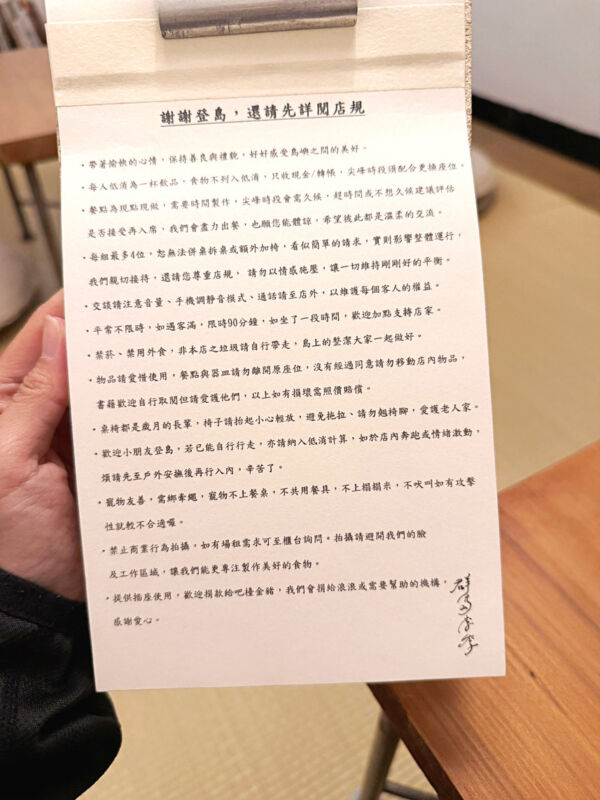 謝謝登島，還請先詳閱店規
・帶著愉悅的心情，保持善良與禮貌，好好感受島嶼之間的美好。
・每人低消為一杯飲品、食物不列入低消，只收現金/轉帳，尖峰時段須配合更換座位。
・餐點為現點現做，需要時間製作，尖峰時段會需久候，趕時間或不想久候建議評估
是否接受再入席，我們會盡力出餐，也願您能體諒，希望彼此都是溫柔的交流。
・每組最多4位，恕無法併桌拆桌或額外加椅，看似簡單的請求，實則影響整體運行，
我們親切接待，還請您尊重店規， 請勿以情感施壓，讓一切維持剛剛好的平衡。
・交談請注意音量、手機調靜音模式、通話請至店外，以維護每個客人的權益。
・平常不限時，如遇客滿，限時90分鐘，如坐了一段時間，歡迎加點支持店家。
・禁菸、禁用外食，非本店之垃圾請自行帶走，島上的整潔大家一起做好。
・物品請愛惜使用，餐點與器皿請勿離開原座位，沒有經過同意請勿移動店內物品，
書籍歡迎自行取閱但請愛護他們，以上如有損壞需照價賠償。
・桌椅都是歲月的長輩，椅子請抬起小心輕放，避免拖拉、請勿翹椅聊，愛護老人家。
・歡迎小朋友登島，若已能自行行走，亦請納入低消計算，如於店內奔跑或情緒激動，
煩請先至戶外安撫後再行入內，辛苦了。
・寵物友善，需綁牽繩，寵物不上餐桌，不共用餐具，不上榻榻米，不吠叫如有攻擊
性就較不合適喔。
・禁止商業行為拍攝，如有場租需求可至櫃台詢問。拍攝請避開我們的臉
及工作區域，讓我們能更專注製作美好的食物。
・提供插座使用，歡迎捐款給吧檯金豬，我們會捐給浪浪或需要幫助的機構，
感謝愛心。